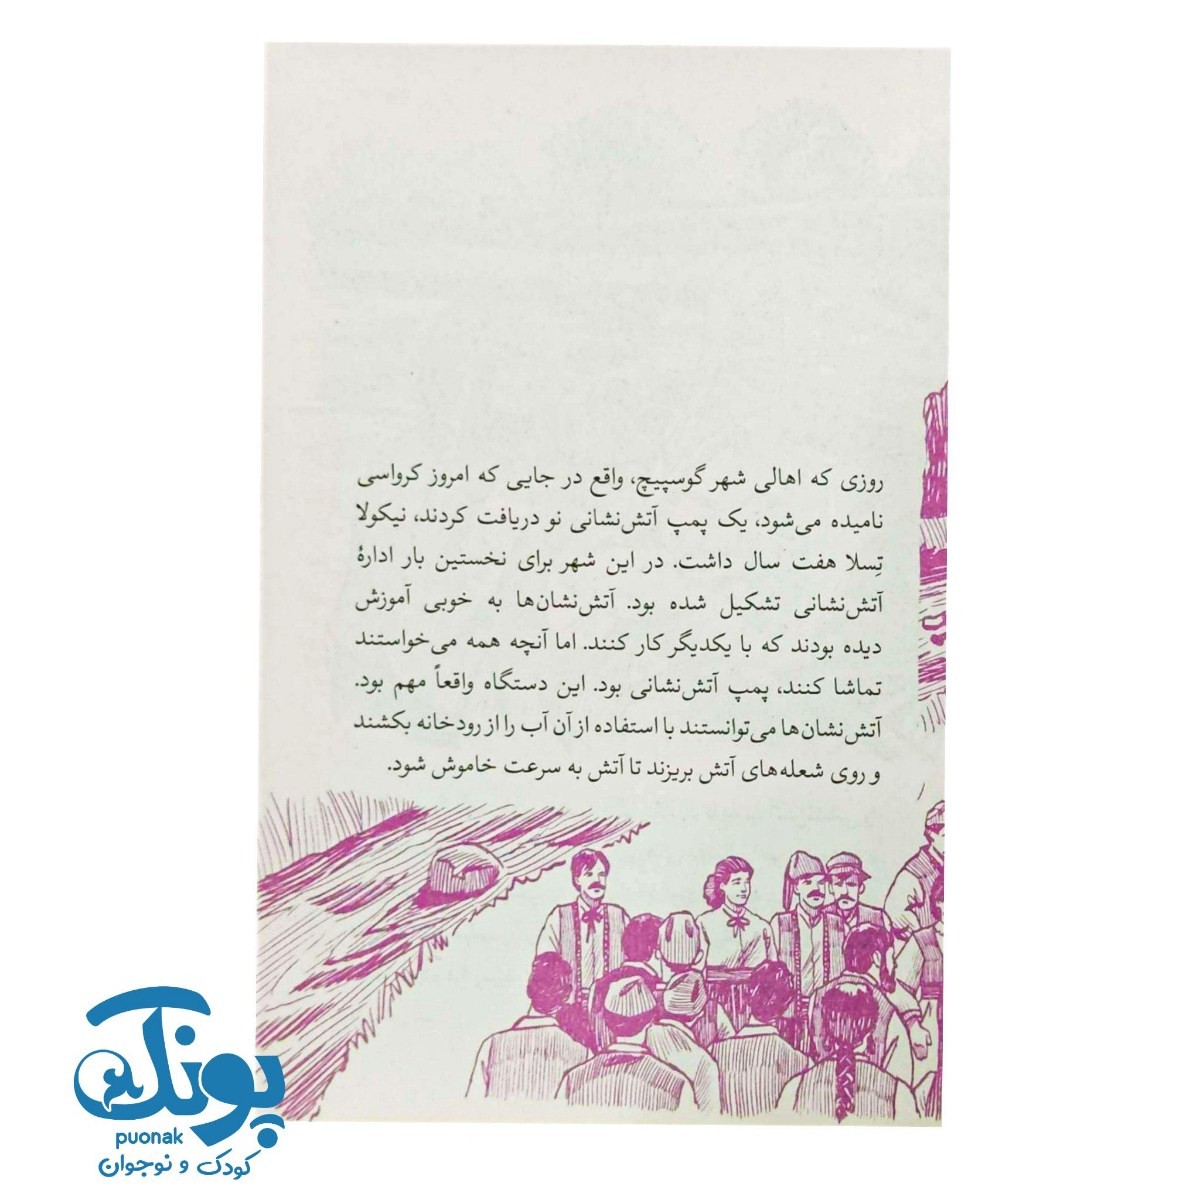 روزی که اهالی شهر گوسپیچ، واقع در جایی که امروز کرواسی
نامیده می‌شود، یک پمپ آتش‌نشانی نو دریافت کردند، نیکولا
تِسلا هفت سال داشت. در این شهر برای نخستین بار ادارهٔ
آتش‌نشانی تشکیل شده بود. آتش‌نشان‌ها به خوبی آموزش
دیده بودند که با یکدیگر کار کنند. اما آنچه همه می‌خواستند
تماشا کنند، پمپ آتش‌نشانی بود. این دستگاه واقعاً مهم بود.
آتش‌نشان‌ها می‌توانستند با استفاده از آن آب را از رودخانه بکشند
و روی شعله‌های آتش بریزند تا آتش به سرعت خاموش شود.
پونک
puonak
کودک و نوجوان